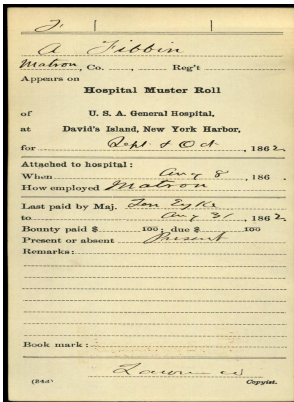 A Fibbin
Matron, Co. , Reg't
Appears on
Hospital Muster Roll
of U. S. A. General Hospital,
at David's Island, New York Harbor,
for Sept & Oct , 1862.
Attached to hospital:
When Aug 8 , 186 .
How employed Matron
Last paid by Maj. Ten Eyke
to Aug 31 , 1862.
Bounty paid $ 100; due $ 100
Present or absent Present
Remarks:
Book mark:
Copyist.